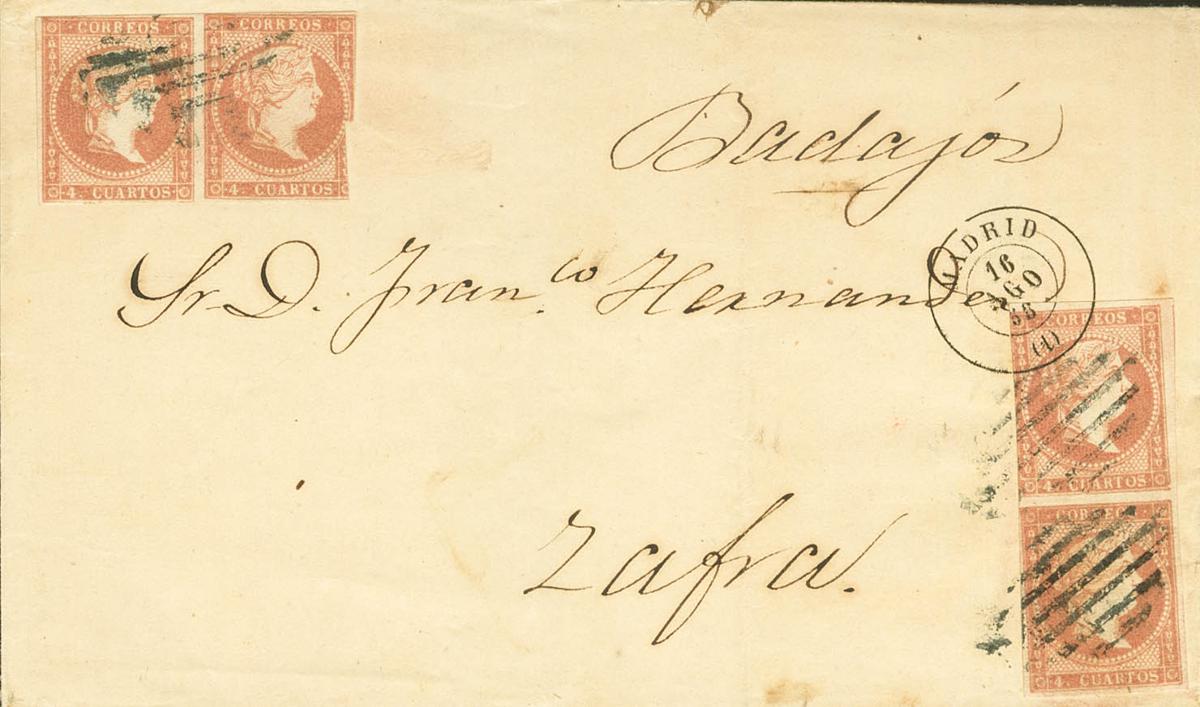 CORREOS CORREOS
4. CUARTOS 4. CUARTOS
Badajós
Sr. D. Franco. Hernandez
MADRID
16
AGO
58
(1)
CORREOS
4. CUARTOS
Zafra.
CORREOS
4. CUARTOS